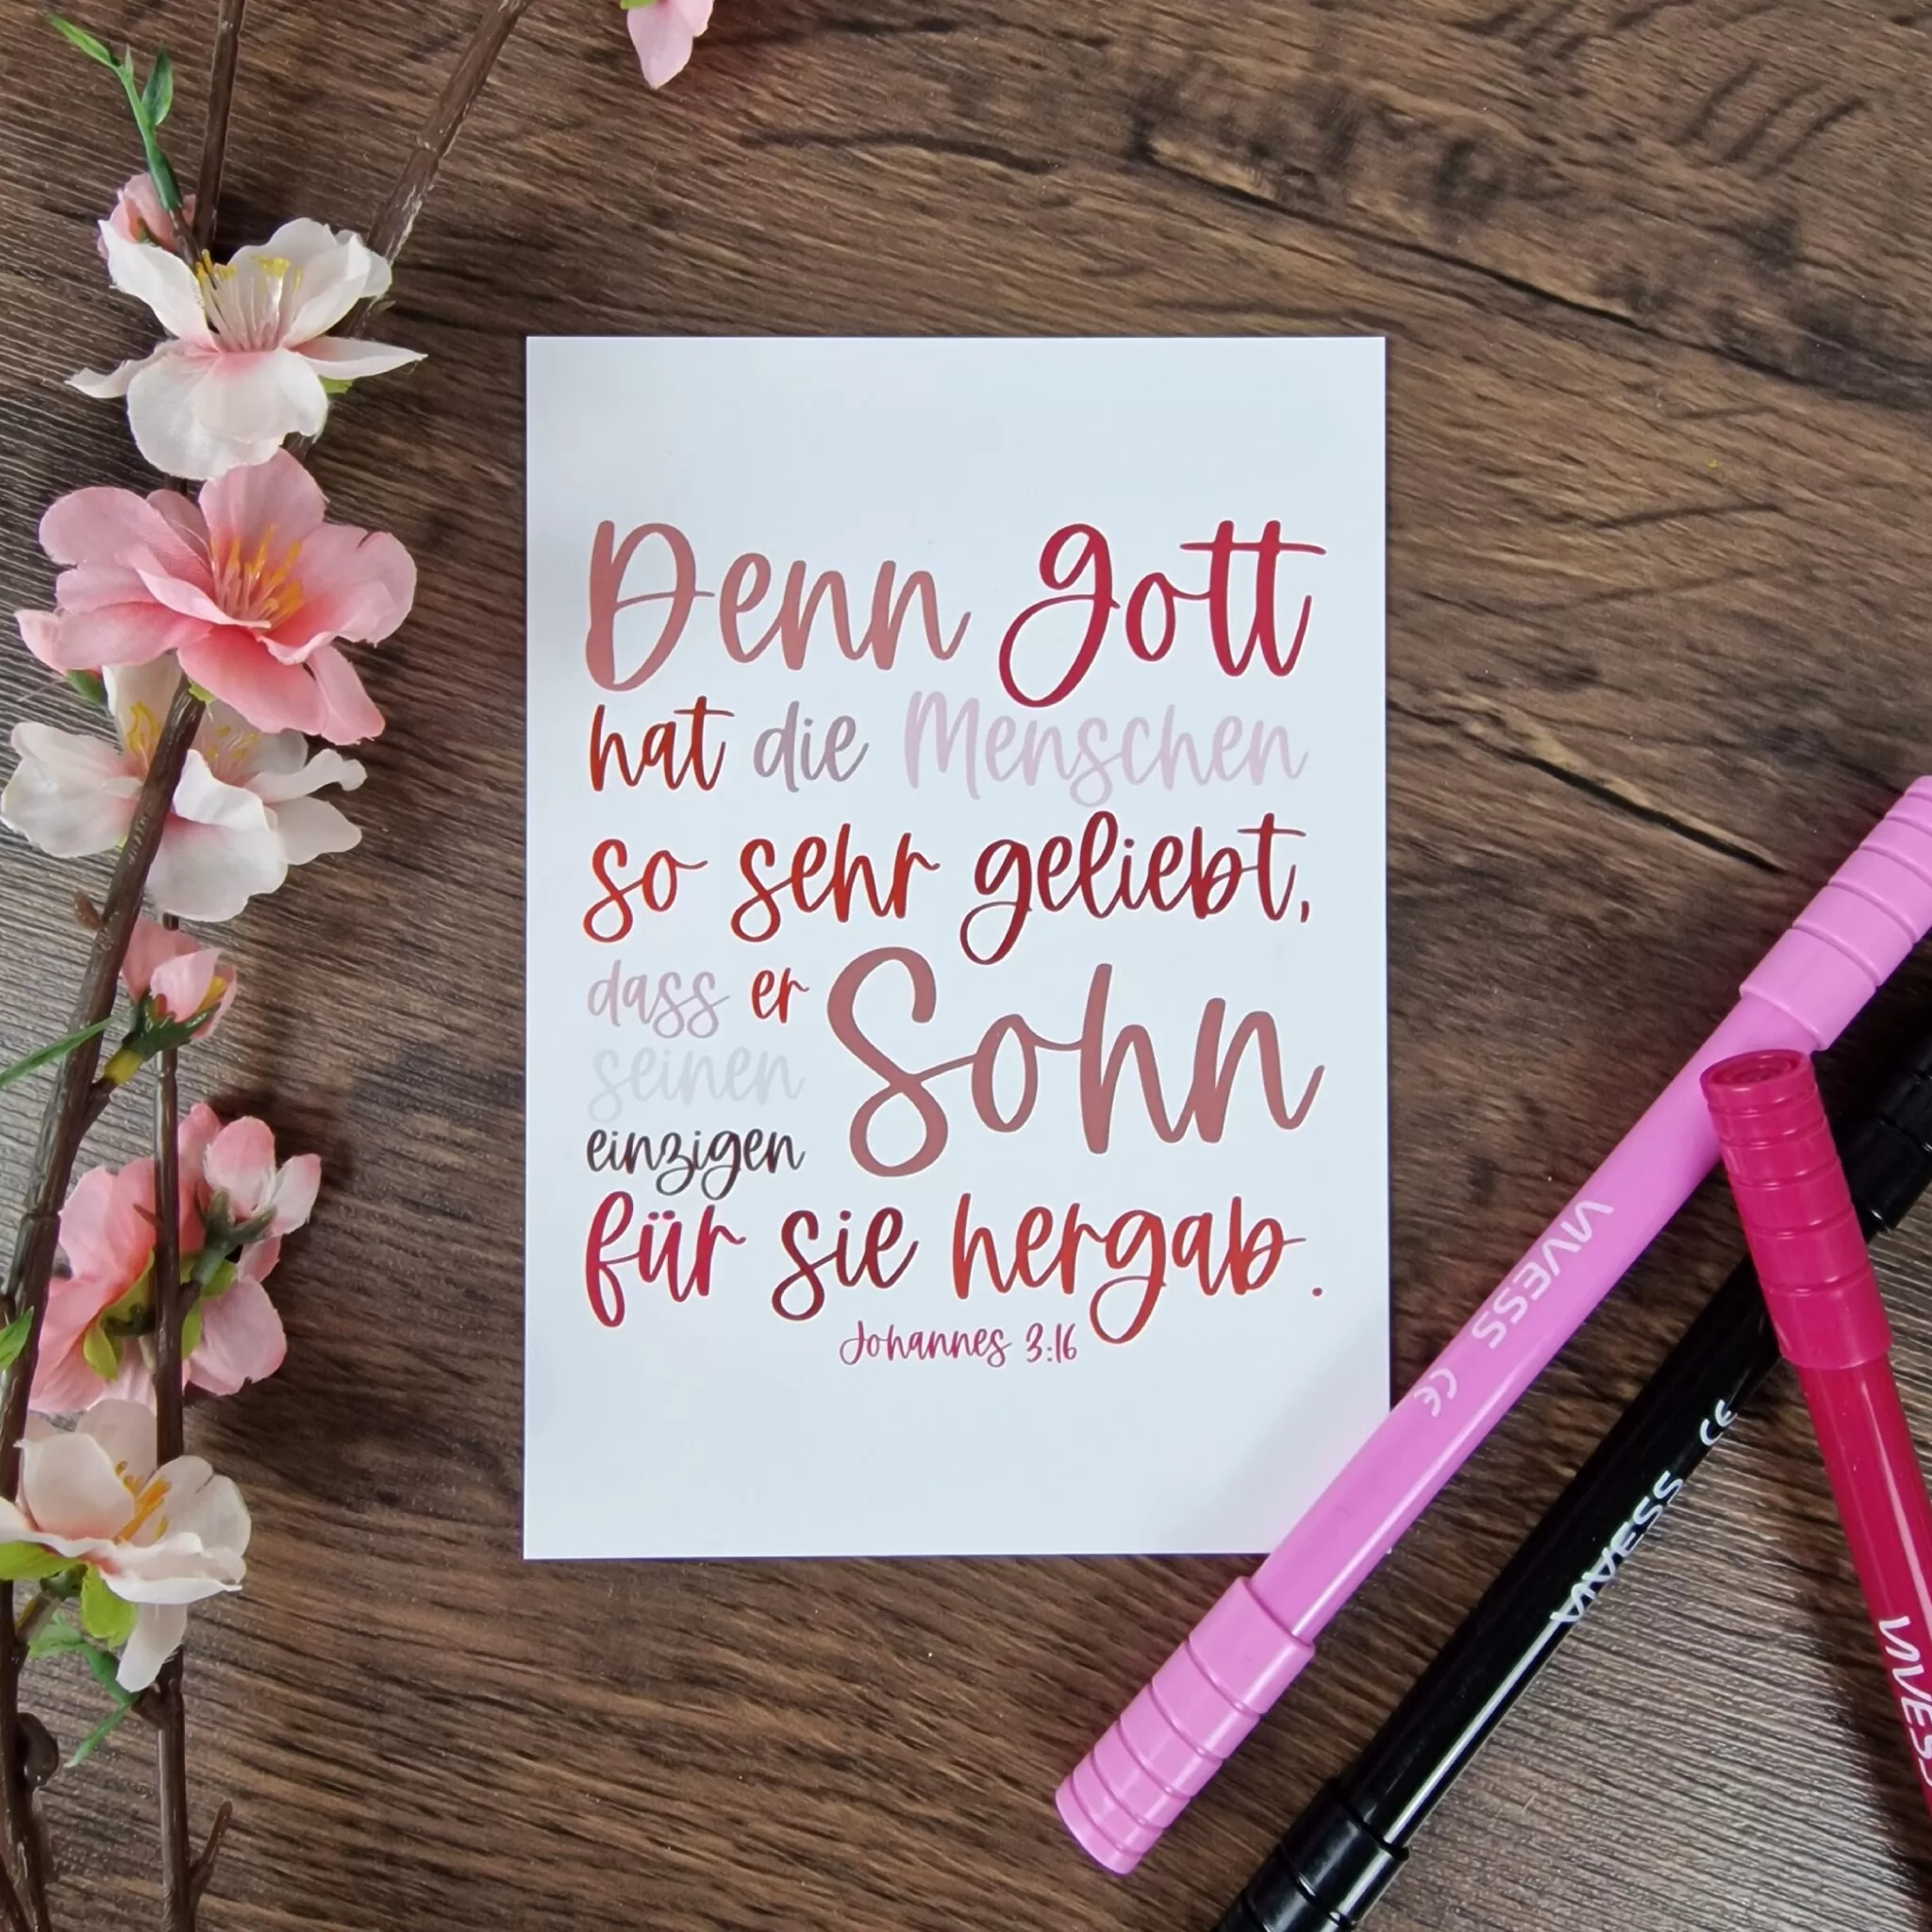 Denn Gott
hat die Menschen
so sehr geliebt,
dass er
seinen
einzigen
Sohn
für sie hergab.
Johannes 3:16
VIVESS CE
VIVESS CE
VIVESS